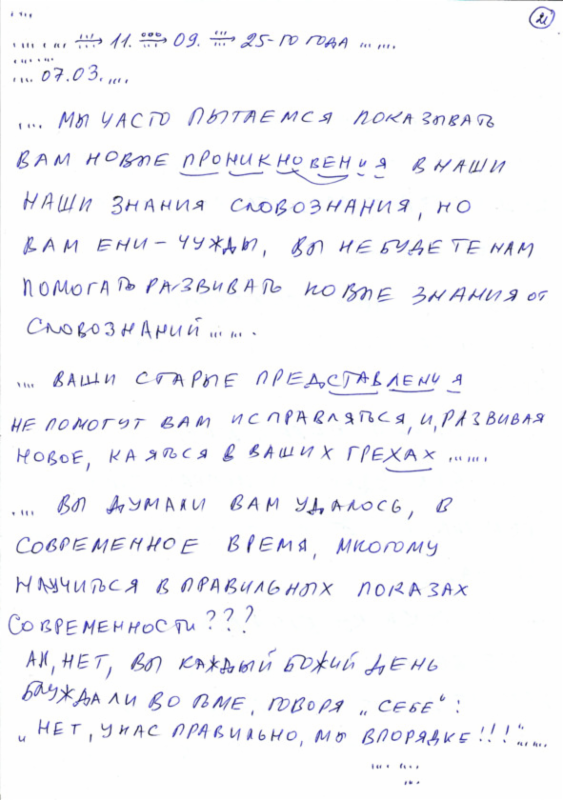 21
.... .. ... 11. 09. 25-ГО ГОДА ... ...
... 07.03. ....
.... МЫ ЧАСТО ПЫТАЕМСЯ ПОКАЗЫВАТЬ
ВАМ НОВЫЕ ПРОНИКНОВЕНИЯ В НАШИ
НАШИ ЗНАНИЯ СЛОВОЗНАНИЯ, НО
ВАМ ЕНИ – ЧУЖДЫ, ВЫ НЕ БУДЕТЕ НАМ
ПОМОГАТЬ РАЗВИВАТЬ НОВЫЕ ЗНАНИЯ ОТ
СЛОВОЗНАНИЙ ... ... .
.... ВАШИ СТАРЫЕ ПРЕДСТАВЛЕНИЯ
НЕ ПОМОГУТ ВАМ ИСПРАВЛЯТЬСЯ, И, РАЗВИВАЯ
НОВОЕ, КАЯТЬСЯ В ВАШИХ ГРЕХАХ ... ... .
.... ВЫ ДУМАЛИ ВАМ УДАЛОСЬ, В
СОВРЕМЕННОЕ ВРЕМЯ, МНОГОМУ
НАУЧИТЬСЯ В ПРАВИЛЬНЫХ ПОКАЗАХ
СОВРЕМЕННОСТИ???
АН, НЕТ, ВЫ КАЖДЫЙ БОЖИЙ ДЕНЬ
БЛУЖДАЛИ ВО ТЬМЕ, ГОВОРЯ „СЕБЕ":
„НЕТ, У НАС ПРАВИЛЬНО, МЫ В ПОРЯДКЕ!!!"... ...